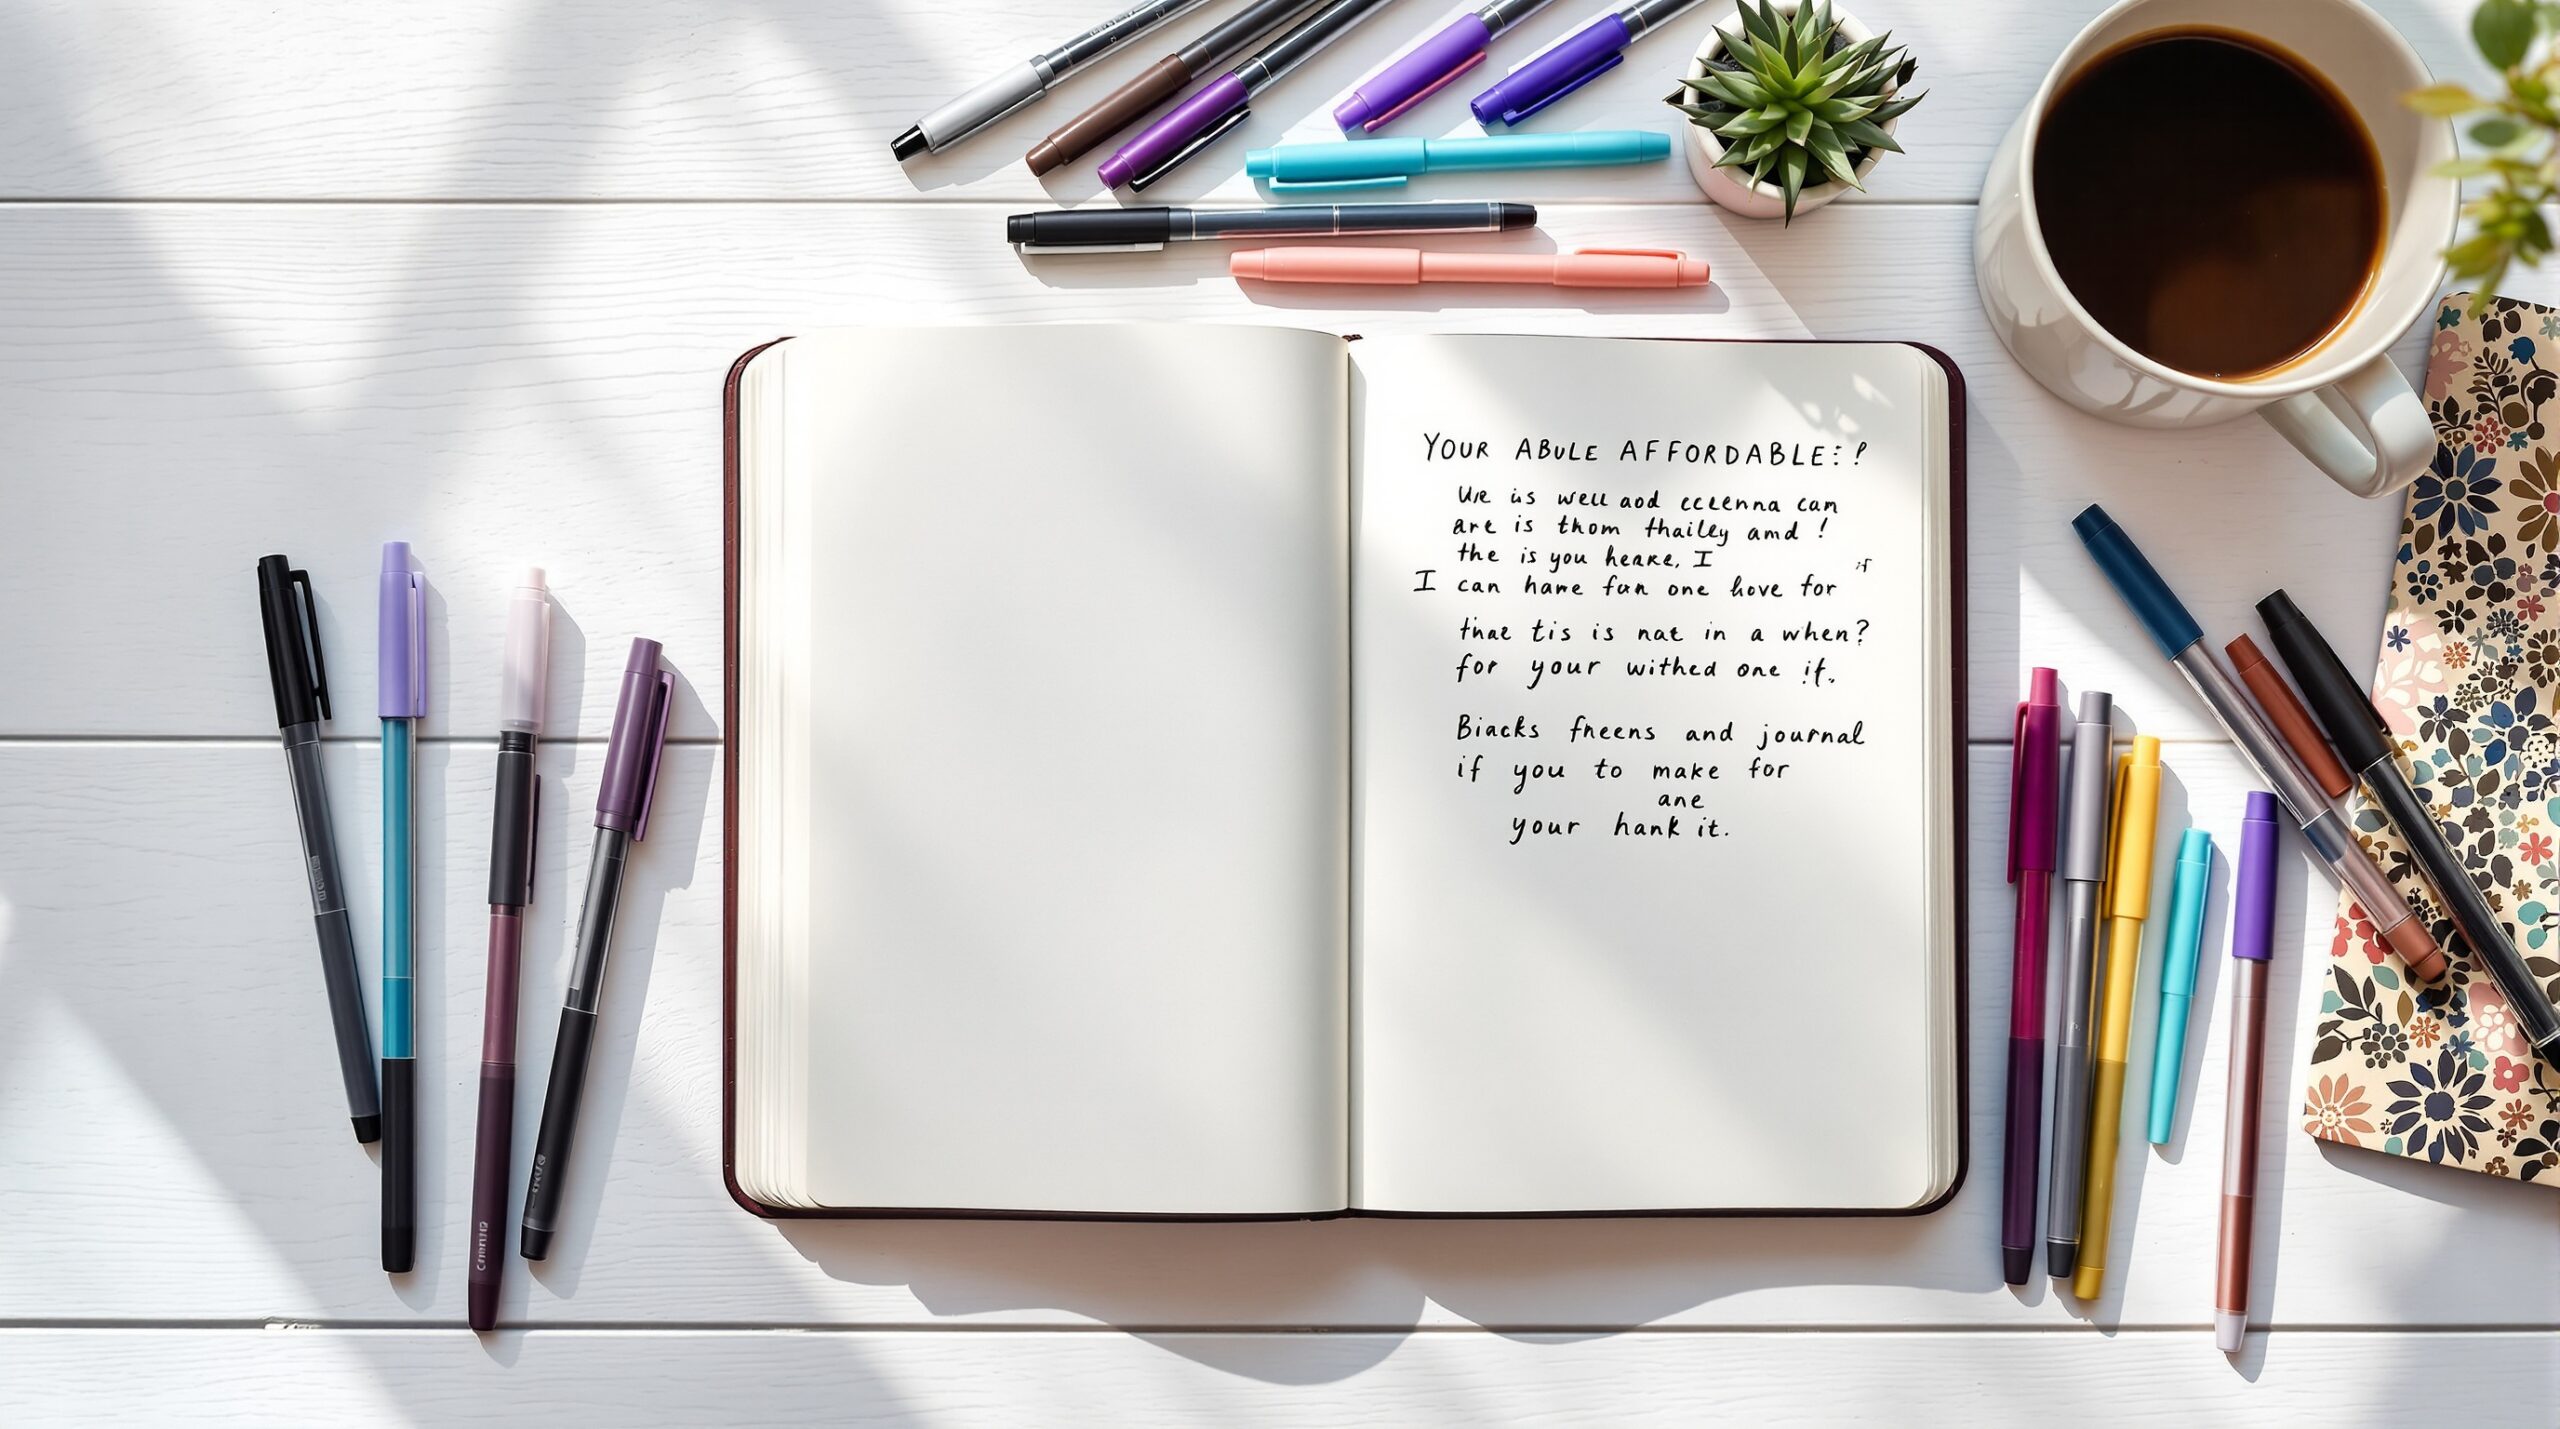 YOUR ABULE AFFORDABLE
is well aod ccenna can
are is thom thailey amd !
the is you heare, I
if
I can hame fan one hove for
that tis is nat in a when?
for your withed one if.
Biacks fneens and journal
if you to make for
ane
your hank it.